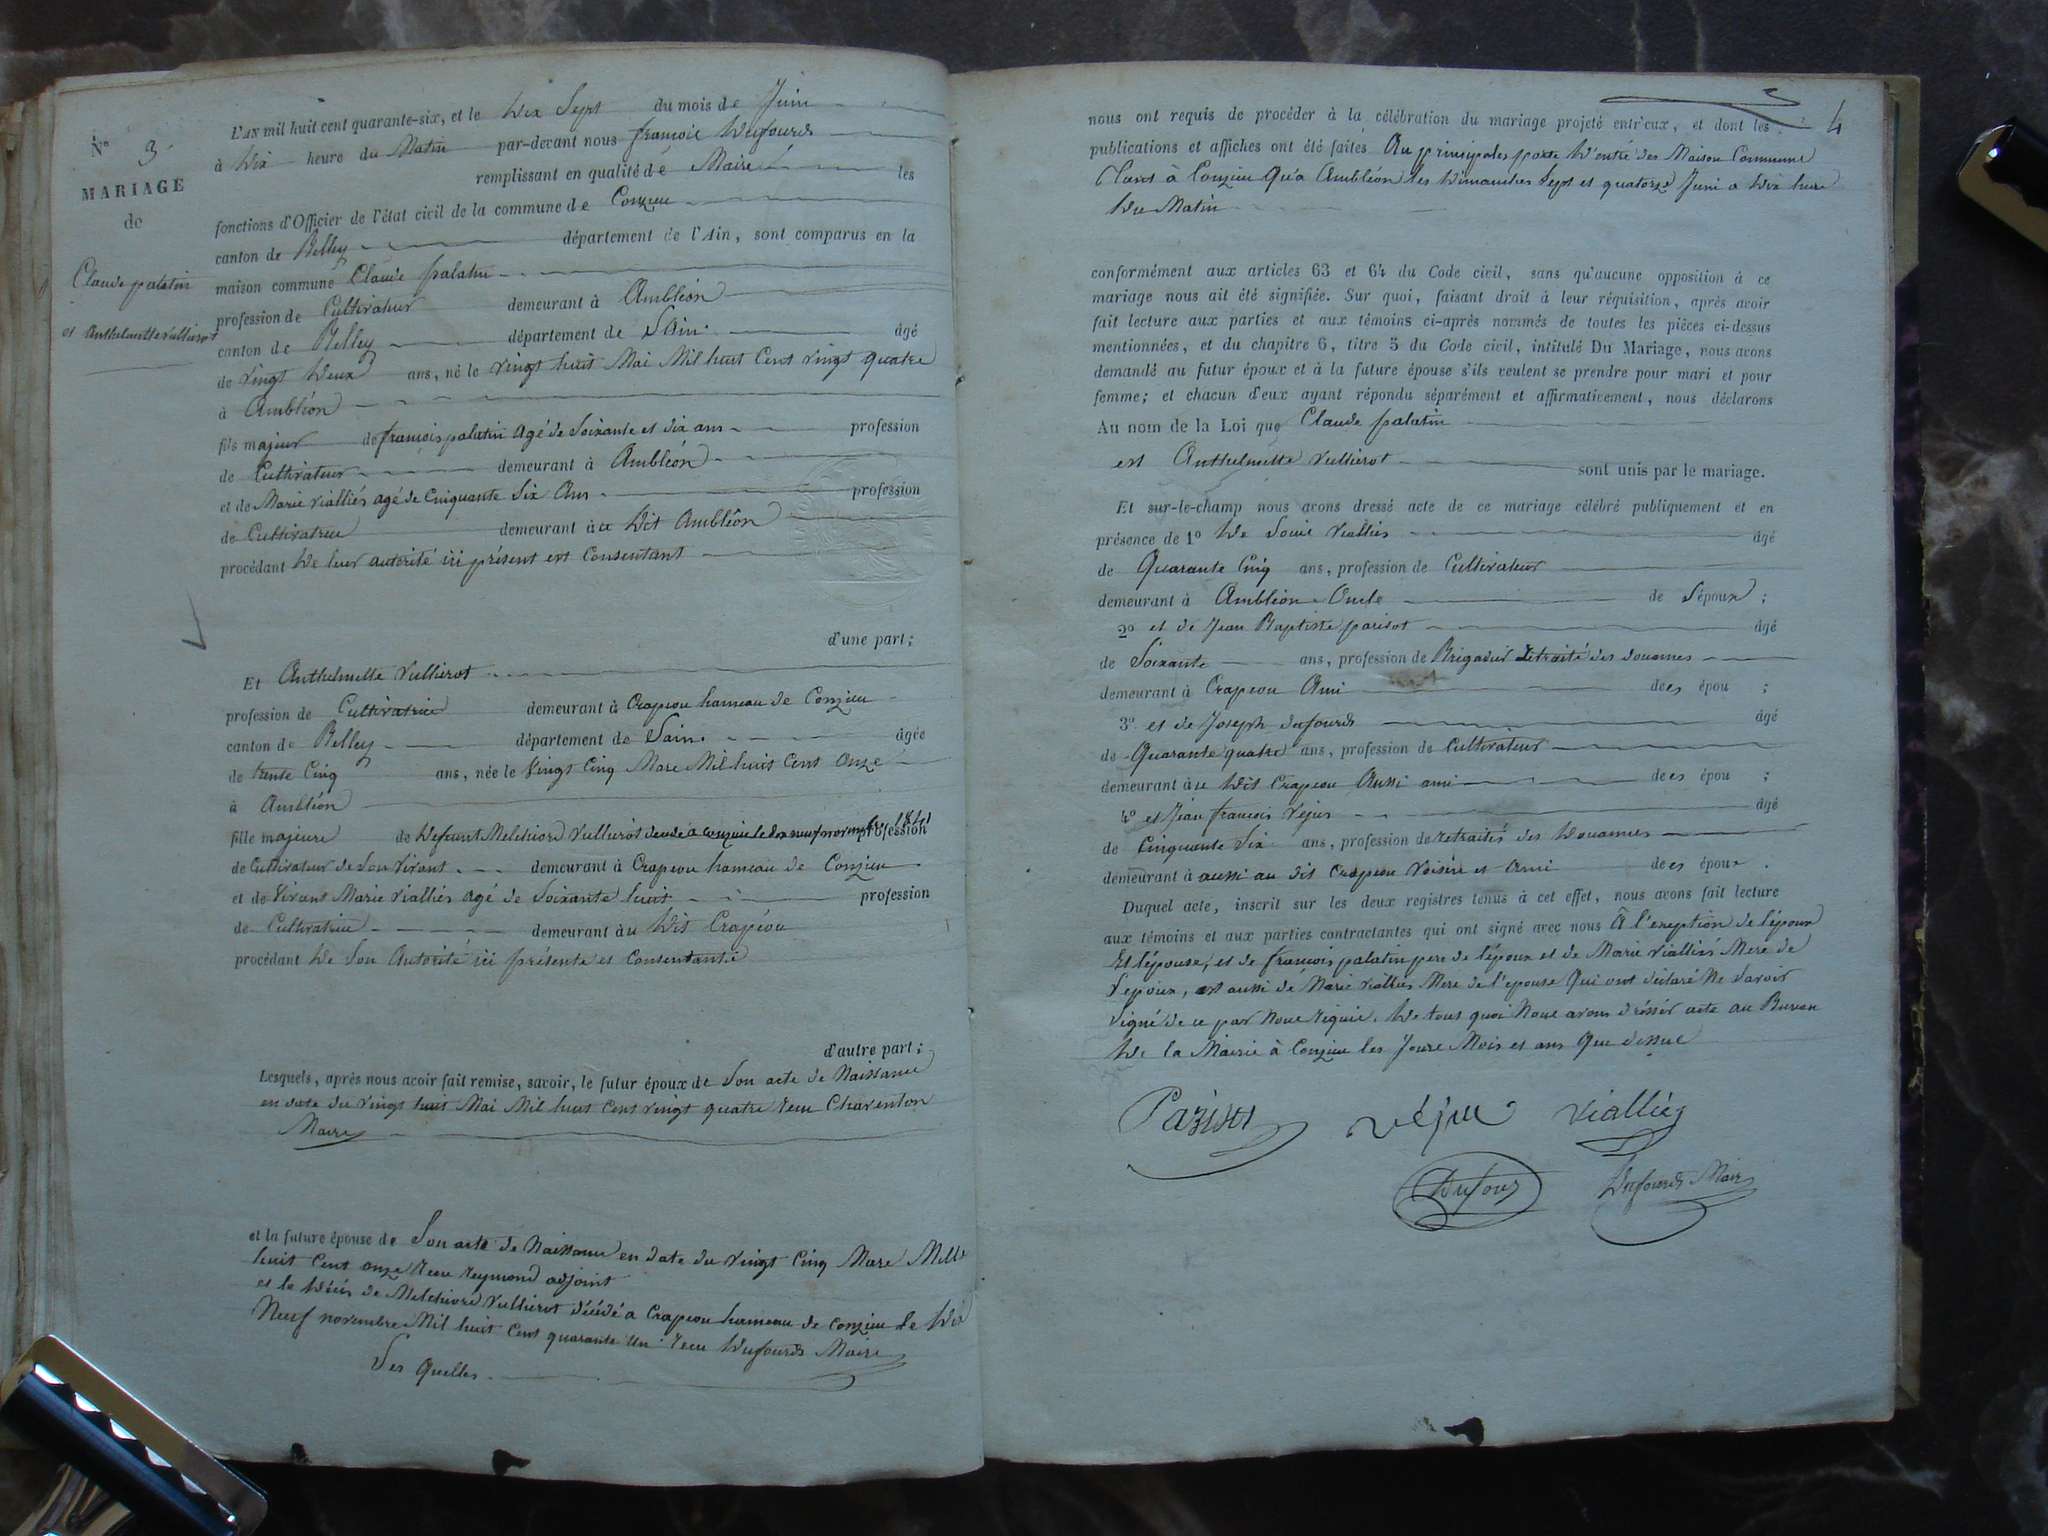 N° 3
MARIAGE
de
Claude palatin
et Anthelmette Vullierot
L'AN mil huit cent quarante-six, et le Dix Sept du mois de Juin
à Dix heure du Matin par-devant nous françois Dufourd
remplissant en qualité de Maire les
fonctions d'Officier de l'état civil de la commune de Conzieu
canton de Belley département de l'Ain, sont comparus en la
maison commune Claude palatin
profession de Cultivateur demeurant à Ambléon
canton de Belley département de L'Ain âgé
de vingt Deux ans, né le vingt huit Mai Mil huit Cent vingt quatre
à Ambléon
fils majeur de françois palatin agé de Soixante et dix ans profession
de Cultivateur demeurant à Ambléon
et de Marie vialliés agé de Cinquante Six Ans profession
de Cultivatrice demeurant àu Dit Ambléon
procédant De leur autorité ici présent est Consentant
d'une part;
Et Anthelmette Vullierot
profession de Cultivatrice demeurant à Crapeou hameau de Conzieu
canton de Belley département de Lain âgée
de trente Cinq ans, née le Vingt Cinq Mars Mil huit Cent Onze
à Ambléon
fille majeure de Defeunt Melchiord Vullierot décédé a conzieu le dix neuf novembre 1841 profession
de Cultivateur de Son Vivant demeurant à Crapeou hameau de Conzieu
et de Vivant Marie vialliés agé de Soixante huit profession
de Cultivatrice demeurant àu Dit Crapéou
procédant De Son Autorité ici présente et Consentante
d'autre part;
Lesquels, après nous avoir fait remise, savoir, le futur époux de Son acte de Naissance
en date du vingt huit Mai Mil huit Cent vingt quatre recu Charenton
Maire
et la future épouse de Son acte de Naissance en date du vingt Cinq Mars Mill
huit Cent onze recu reymond adjoint
et le Décès de Melchiord Vullierot décédé a Crapeou hameau de conzieu le Dix
Neuf novembre Mil huit Cent quarante un recu Dufourd Maire
Les Quelles
4
nous ont requis de procéder à la célébration du mariage projeté entr'eux, et dont les
publications et affiches ont été faites Au principales porte D'entré des Maison Commune
tant à Conzieu Qu'a Ambléon les Dimanches Sept et quatorze Juin a Dix hure
Du Matin
conformément aux articles 63 et 64 du Code civil, sans qu'aucune opposition à ce
mariage nous ait été signifiée. Sur quoi, faisant droit à leur réquisition, après avoir
fait lecture aux parties et aux témoins ci-après nommés de toutes les pièces ci-dessus
mentionnées, et du chapitre 6, titre 5 du Code civil, intitulé Du Mariage, nous avons
demandé au futur époux et à la future épouse s'ils veulent se prendre pour mari et pour
femme; et chacun d'eux ayant répondu séparément et affirmativement, nous déclarons
Au nom de la Loi que Claude palatin
est Anthelmette Vullierot sont unis par le mariage.
Et sur-le-champ nous avons dressé acte de ce mariage célébré publiquement et en
présence de 1° De Louis Vialliés âgé
de Quarante Cinq ans, profession de Cultivateur
demeurant à Ambléon Oncle de L'époux;
2° et de Jean Baptiste parisot âgé
de Soixante ans, profession de Brigadier retraité des douanes
demeurant à Crapeou Ami de es épou;
3° et de Joseph dufourd âgé
de Quarante quatre ans, profession de Cultivateur
demeurant àu Dit Crapeou Aussi ami de es épou;
4° et Jean françois Véjus âgé
de Cinquante Six ans, profession de retraités des Douannes
demeurant à aussi au dit Crapeou Voisin et Ami de es époux.
Duquel acte, inscrit sur les deux registres tenus à cet effet, nous avons fait lecture
aux témoins et aux parties contractantes qui ont signé avec nous A l'exeption de l'époux
Et l'épouse, et de françois palatin pere de l'époux et de Marie vialliés Mere de
L'epoux, et aussi de Marie vialliés Mere de l'epouse Qui ont déclaré Ne Savoir
Signé de ce par Nous requis. De tous quoi Nous avons dréssér acte au Bureau
De la Mairie à Conzieu les Jours Mois et ans Que dessus
Parisot
véjus
vialliés
Dufour
Dufourd Maire